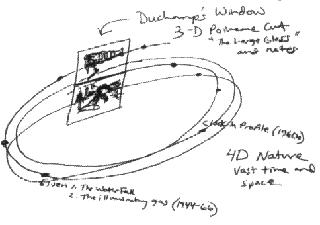 Duchamp's Window
3-D Poincaré Cut
"The Large Glass"
and notes
Profile (1960s)
4D Nature
Vast time and
space
Given 1. The Waterfall
2. The illuminating gas (1944-66)